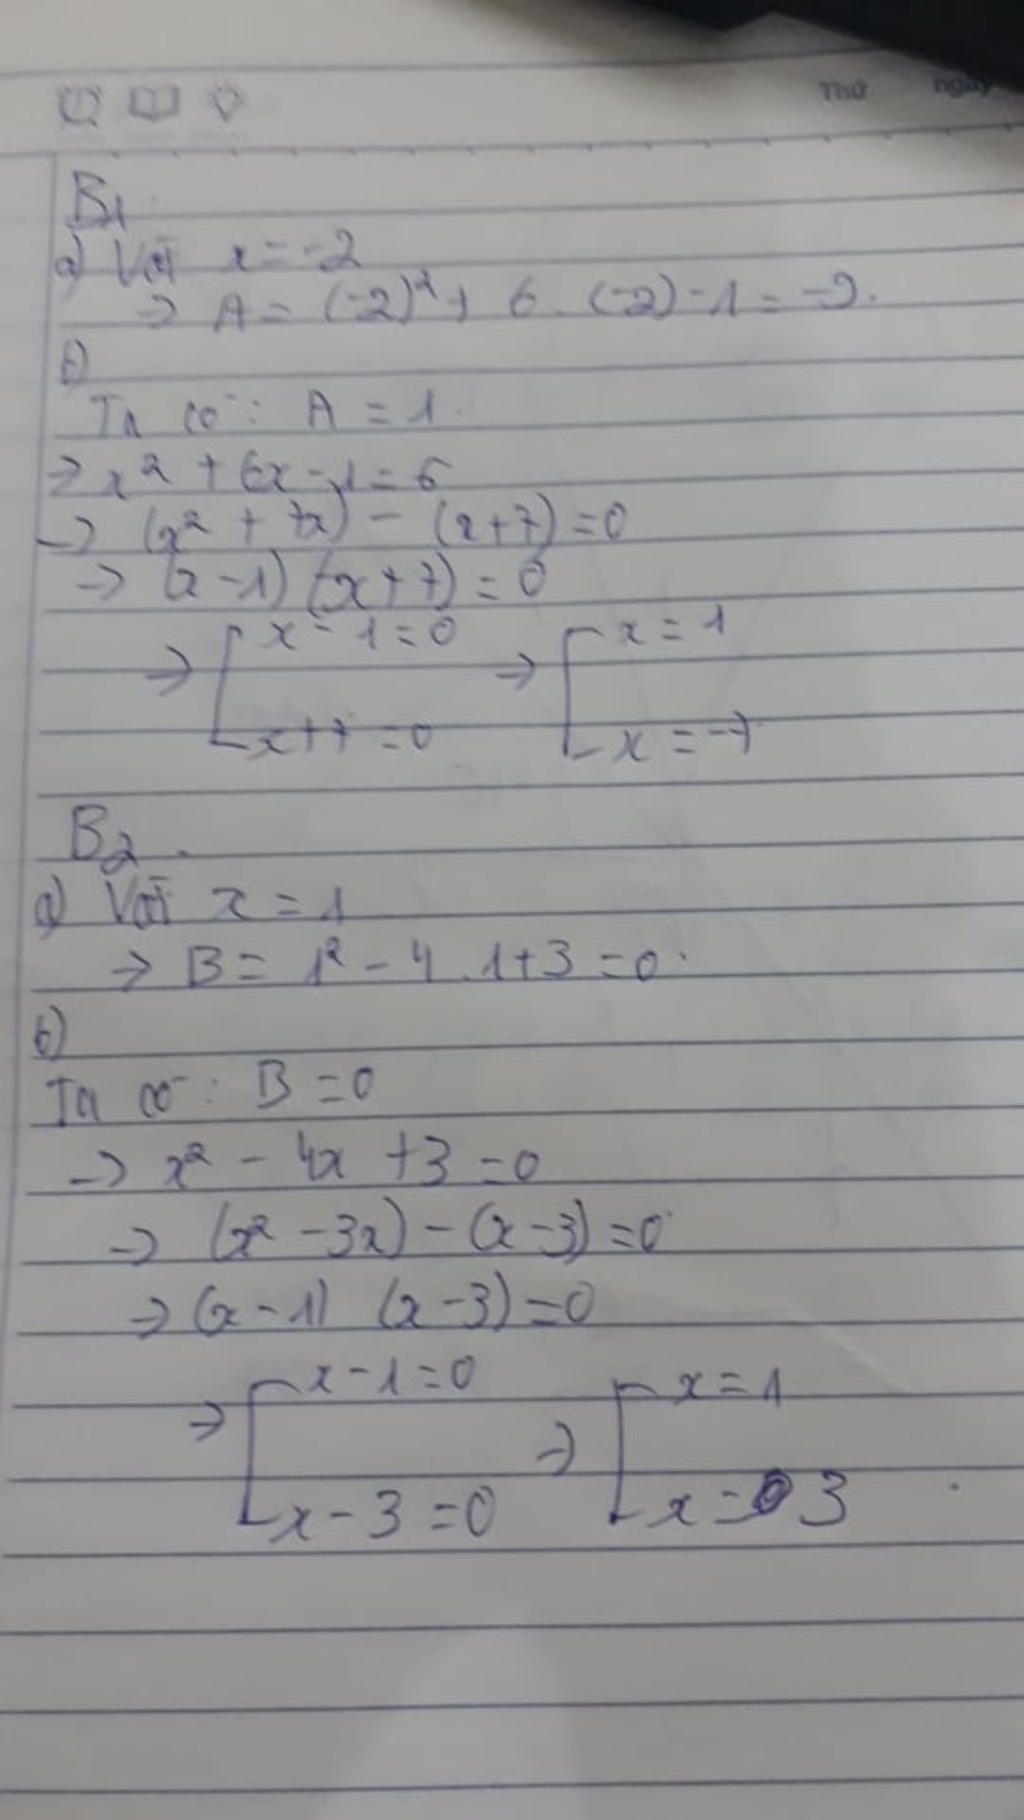 Thứ ngày
B1
a) Với x = -2
→ A = (-2)² + 6 . (-2) - 1 = -9.
b)
Ta có: A = 1.
→ x² + 6x - 1 = 6
→ (x² + 7x) - (x + 7) = 0
→ (x - 1) (x + 7) = 0
→ [ x - 1 = 0 → [ x = 1
x + 7 = 0 x = -7
B2.
a) Với x = 1
→ B = 1² - 4 . 1 + 3 = 0.
b)
Ta có: B = 0
→ x² - 4x + 3 = 0
→ (x² - 3x) - (x - 3) = 0
→ (x - 1) (x - 3) = 0
→ [ x - 1 = 0 → [ x = 1
x - 3 = 0 x = 3